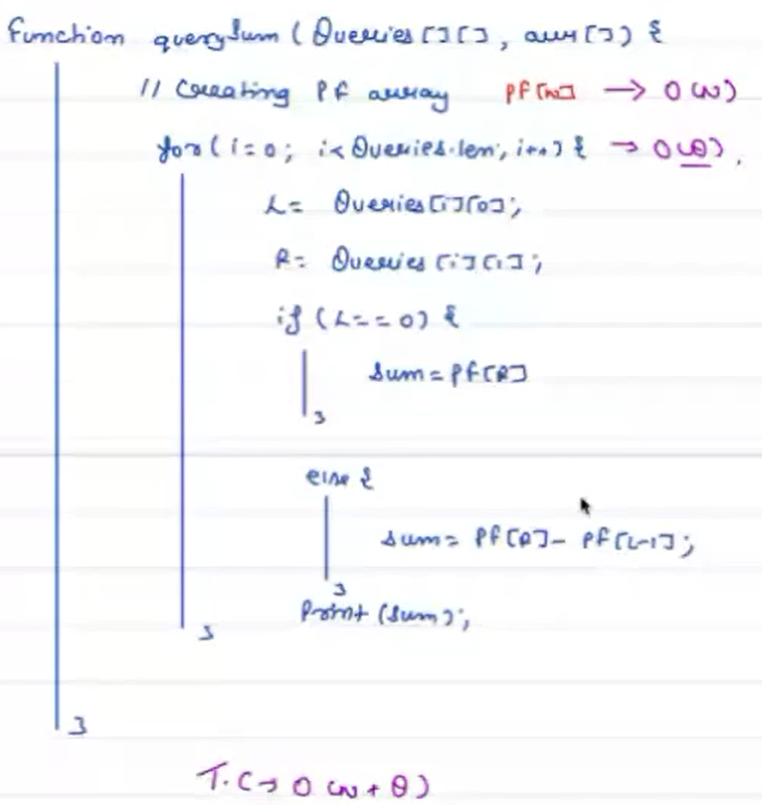 function querySum ( Queries [ ] [ ] , arr [ ] ) {
// Creating PF array PF[n] → O(N)
for ( i = 0 ; i < Queries.len ; i++ ) { → O(Q) .
L = Queries[i][0] ;
R = Queries[i][1] ;
if ( L == 0 ) {
sum = PF[R]
}
else {
sum = PF[R] - PF[L-1] ;
}
Print (sum) ;
}
}
T.C → O(N + Q)